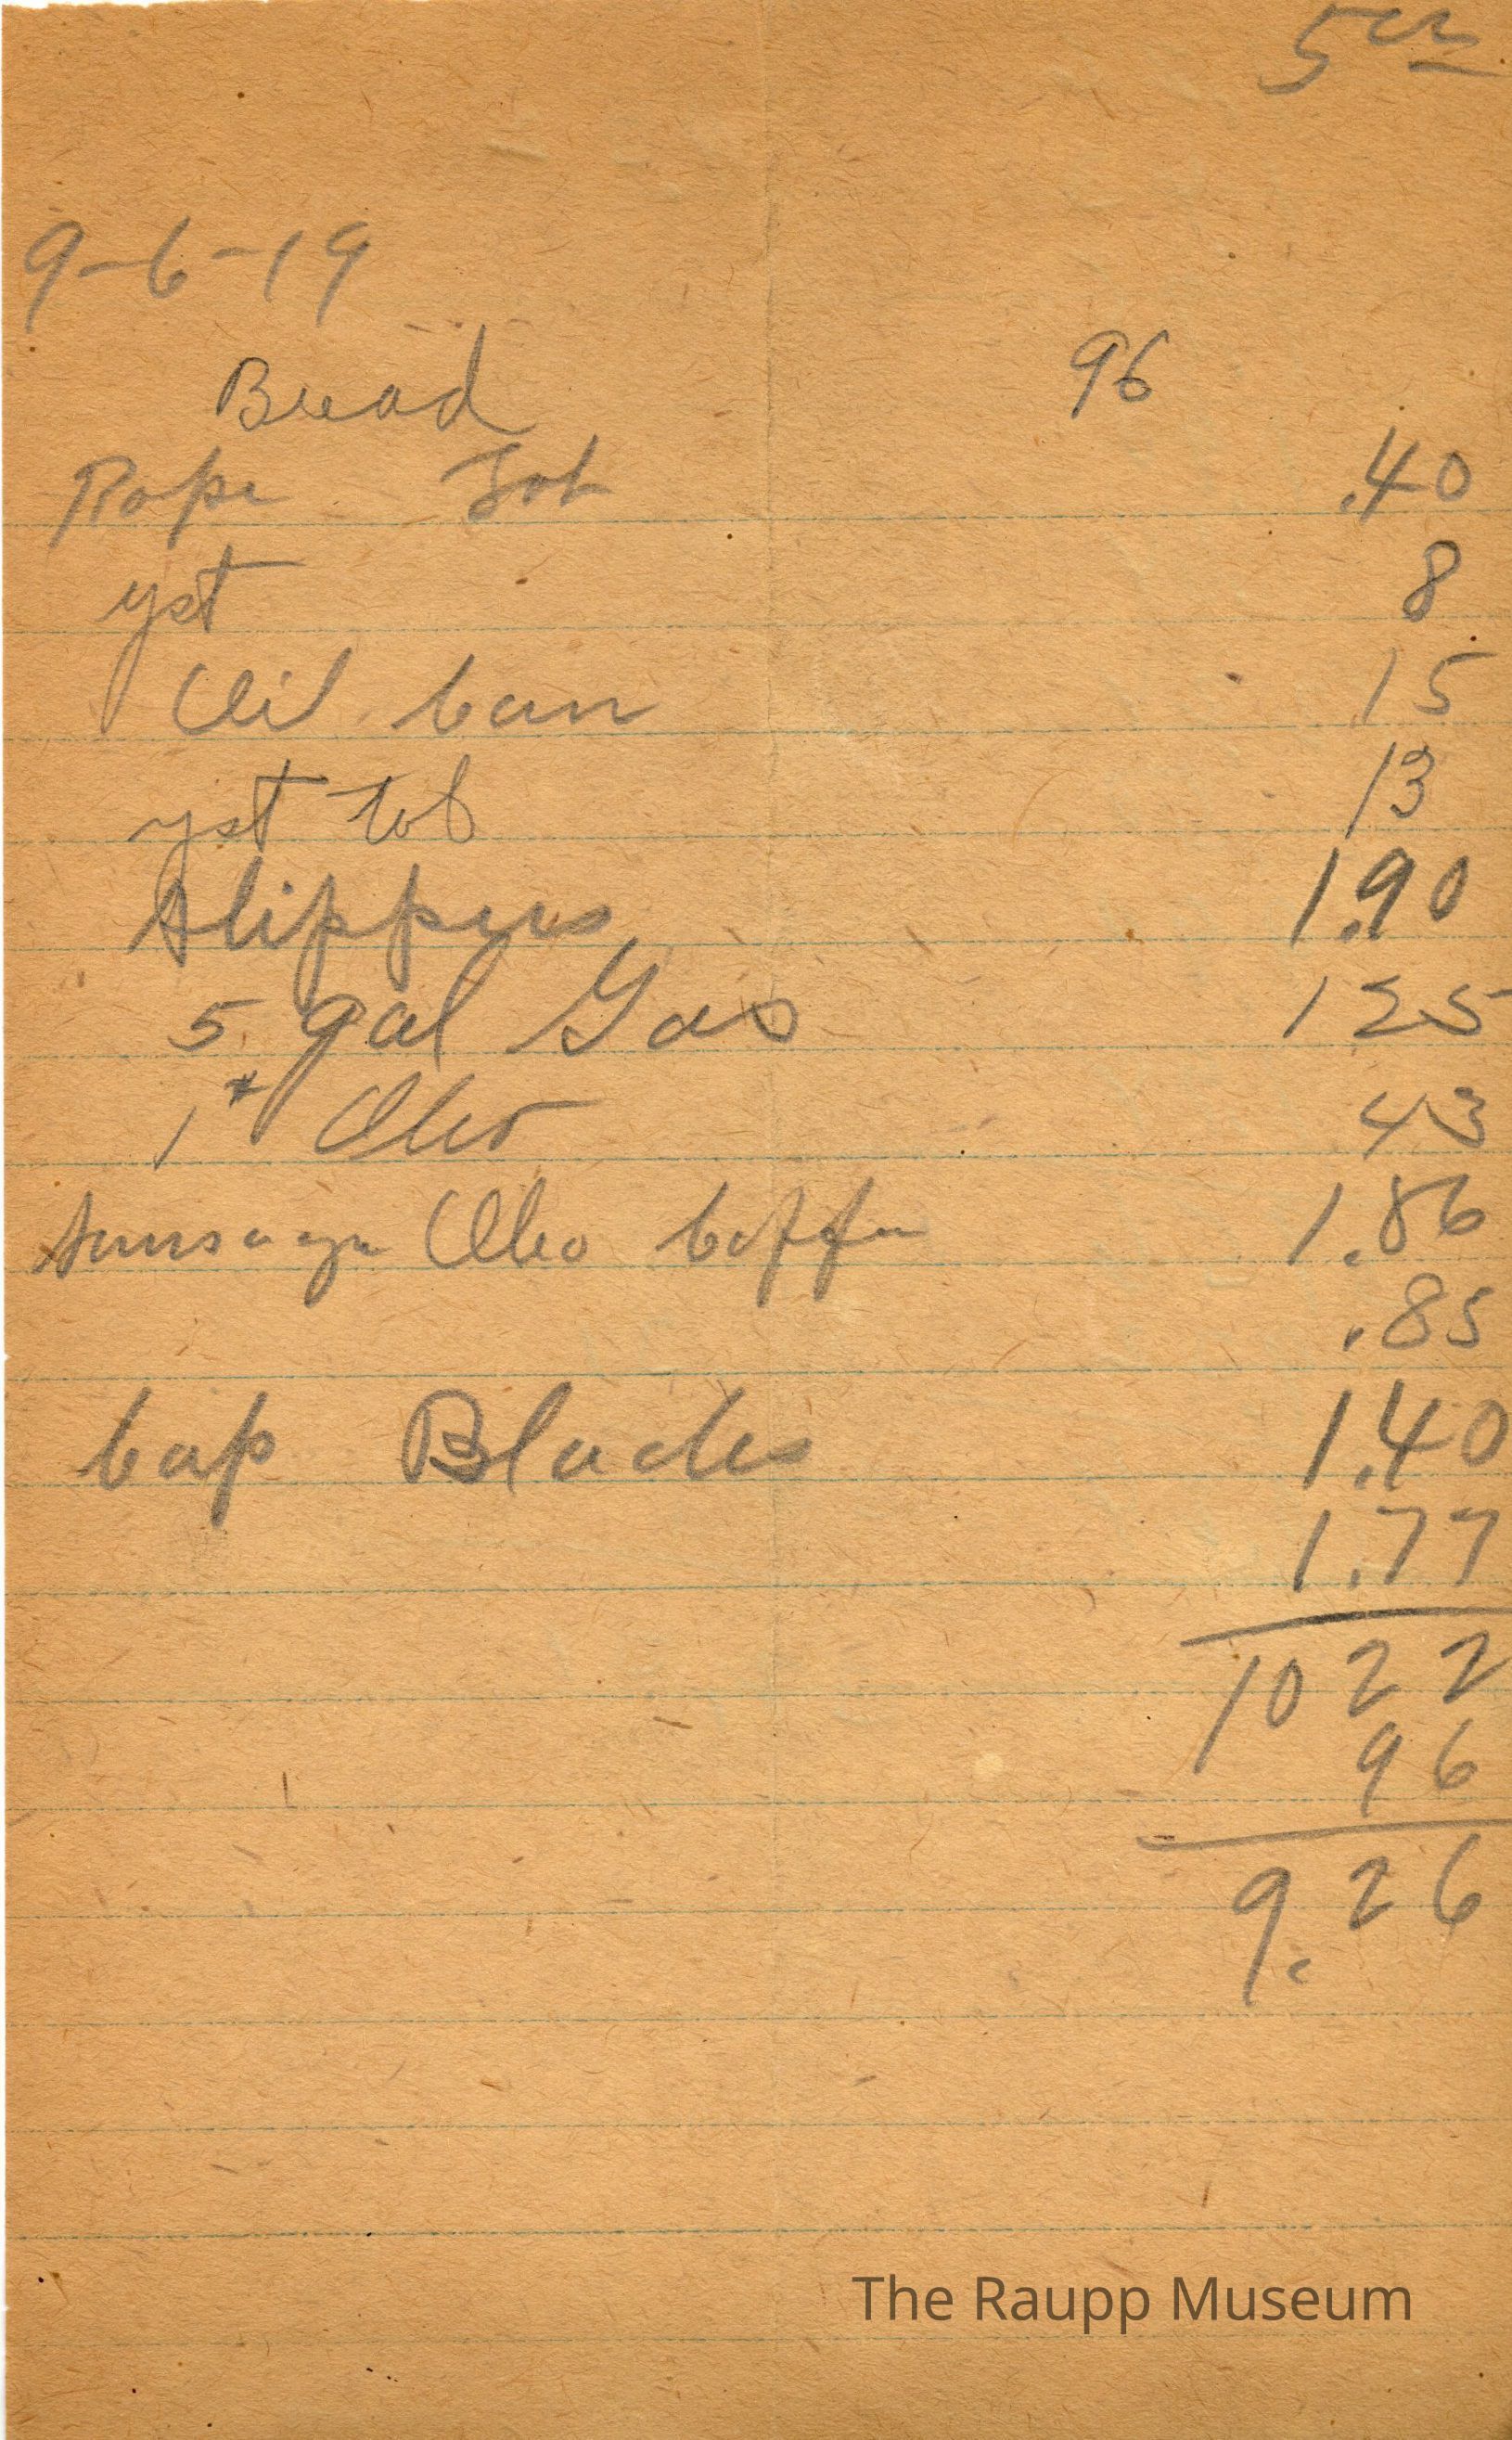 5
9-6-19
Bread 96
Rope Tob .40
yst 8
Oil Can 15
yst tob 13
Slippers 1.90
5 gal Gas 125
1# Oleo 43
Oleo Coffee 1.86
.85
Cap 1.40
1.77
10 22
96
9.26
The Raupp Museum